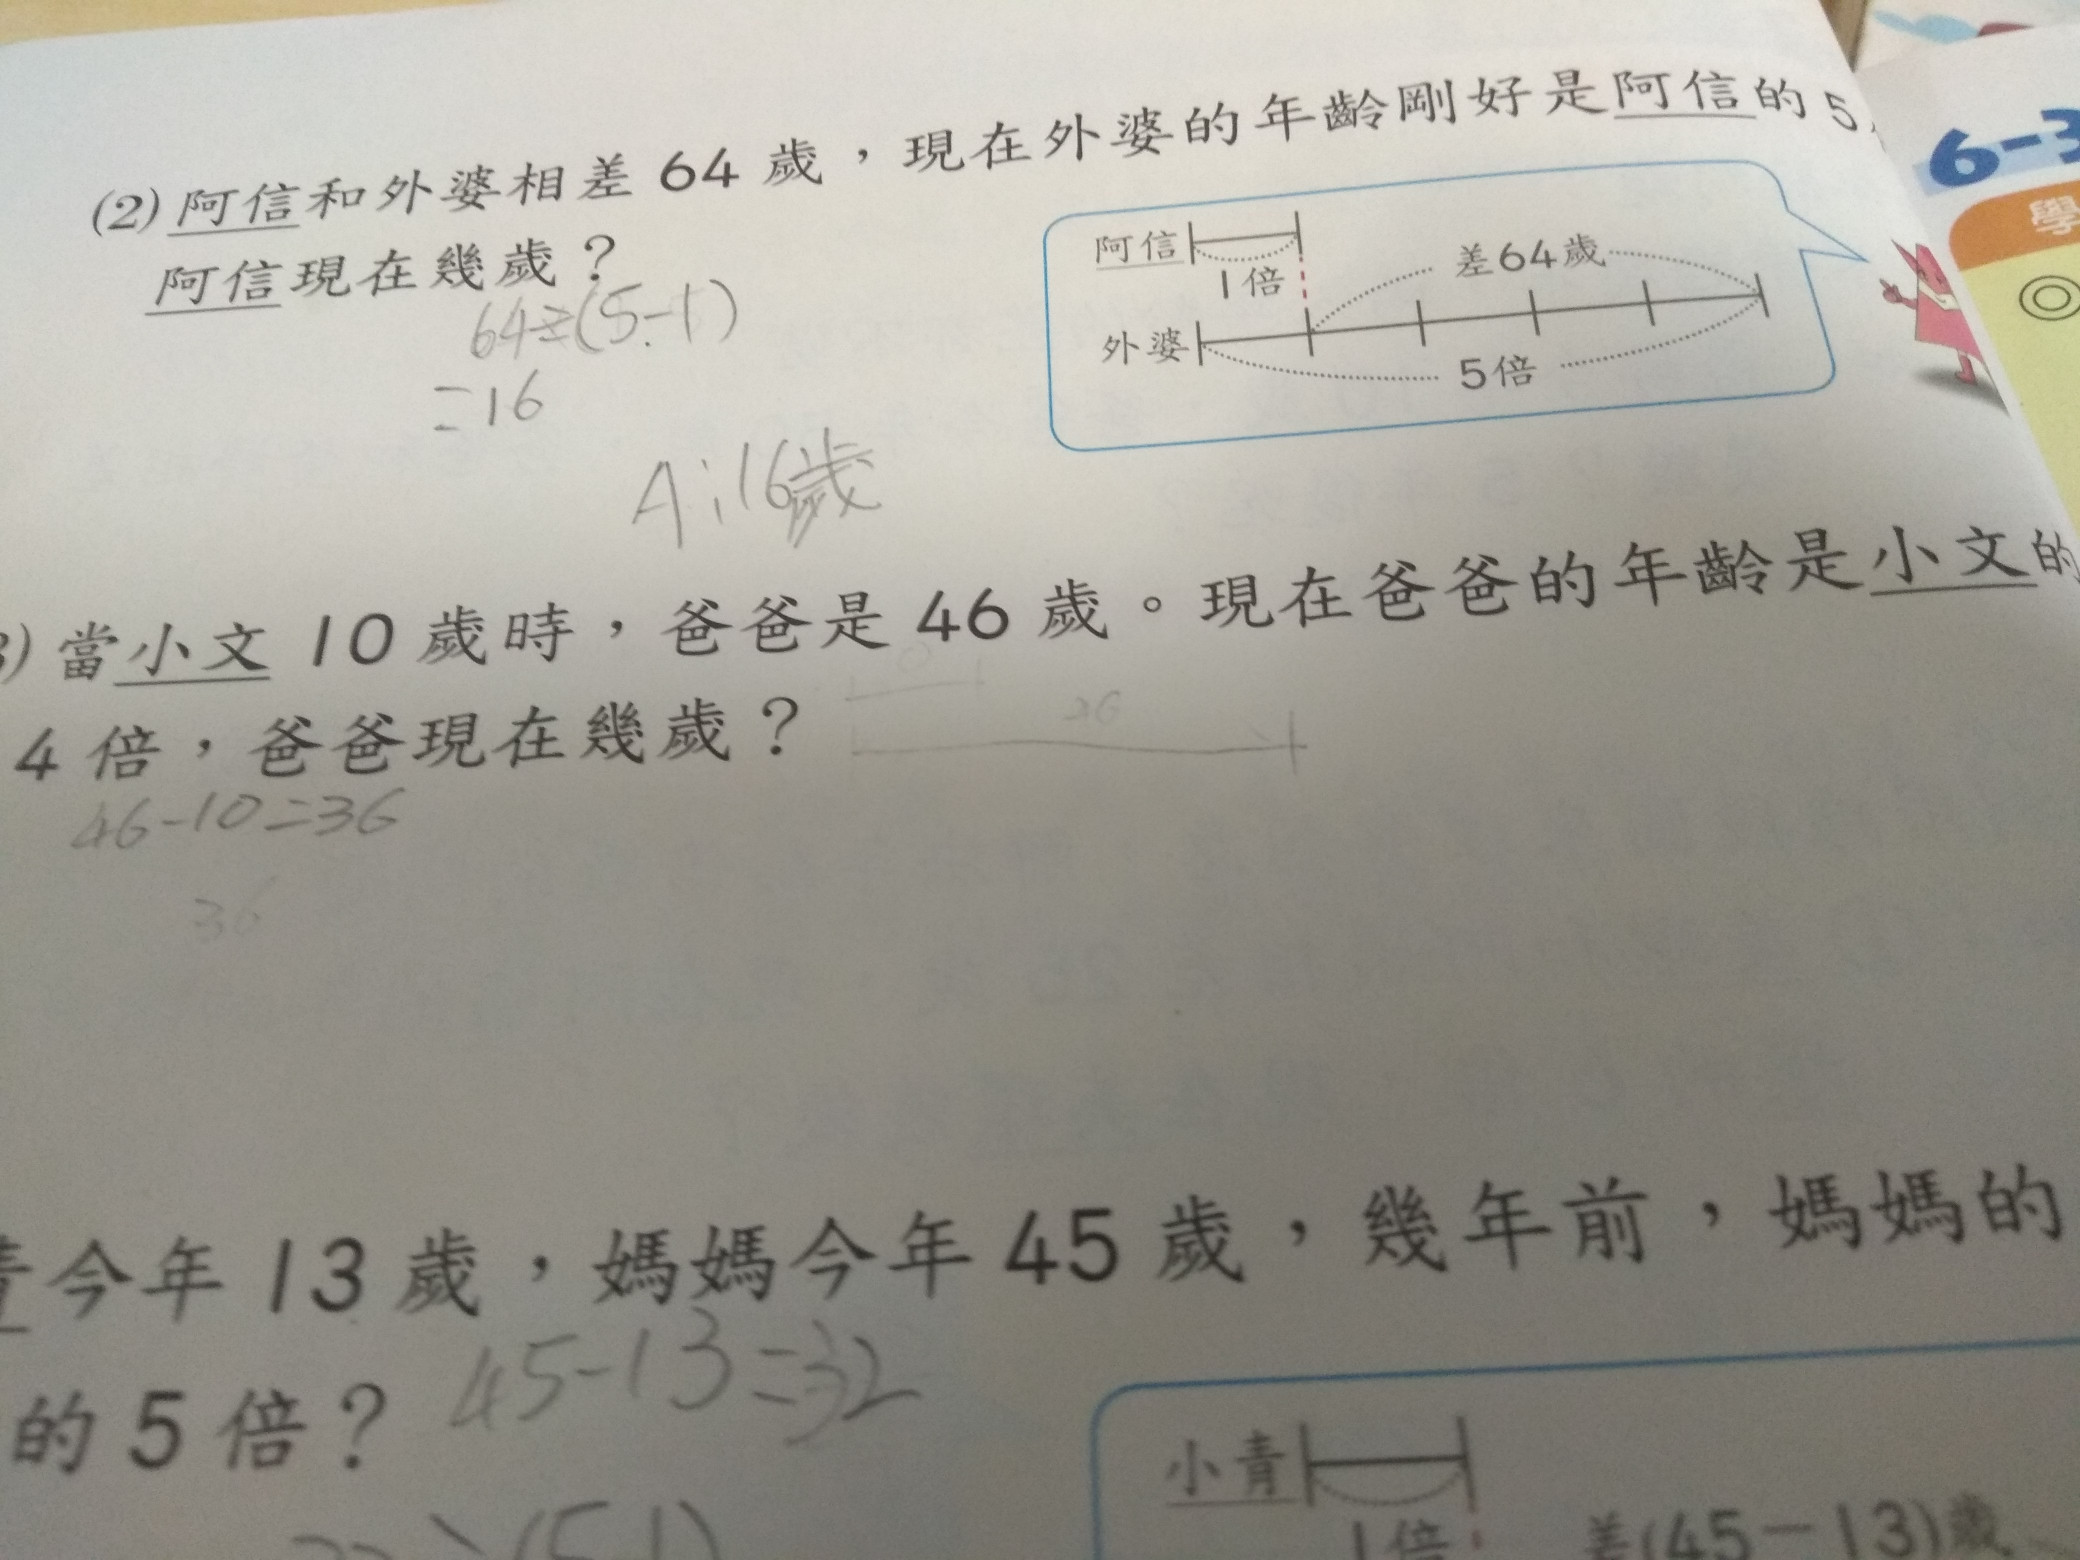 (2) 阿信和外婆相差 64 歲，現在外婆的年齡剛好是阿信的 5
阿信現在幾歲？
64÷(5-1)
=16
A:16歲
阿信
1倍
差64歲
外婆
5倍
6-3
學
◎
3) 當小文 10 歲時，爸爸是 46 歲。現在爸爸的年齡是小文的
4 倍，爸爸現在幾歲？
36
46-10=36
36
青今年 13 歲，媽媽今年 45 歲，幾年前，媽媽的
的 5 倍？
45-13=32
(5-1)
小青
1倍
差(45-13)歲